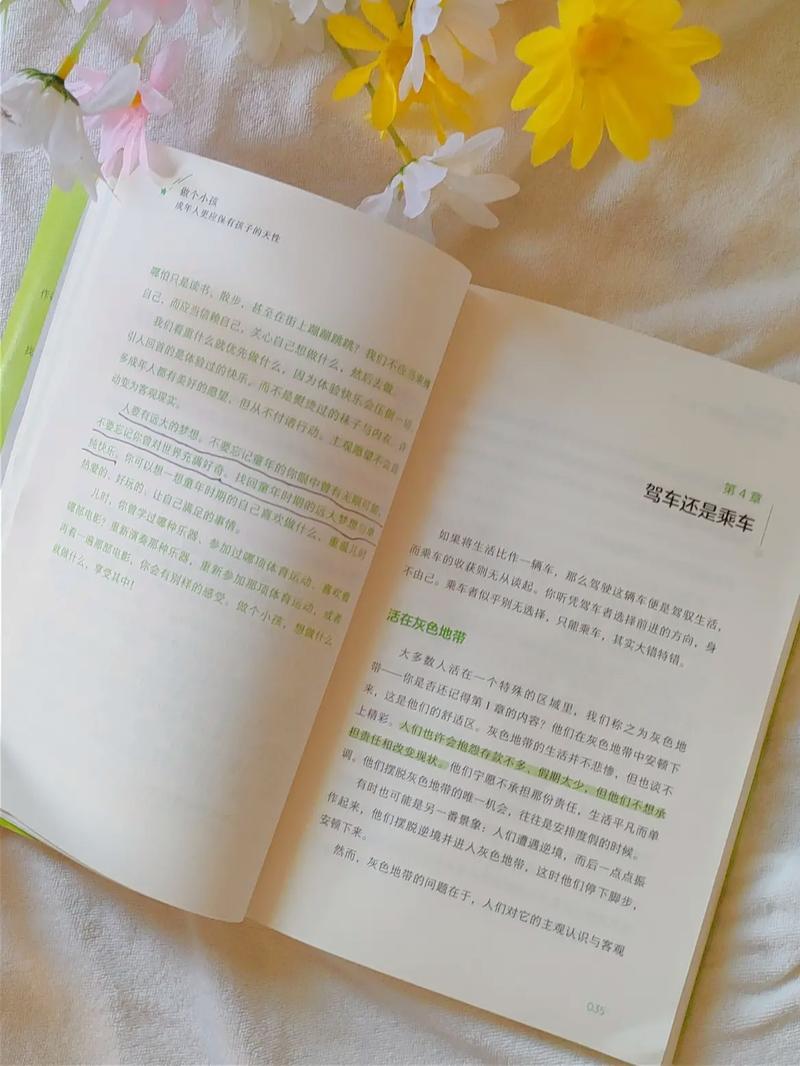 做个小孩
成年人更应保有孩子的天性
哪怕只是读书、散步，甚至在街上蹦蹦跳跳？我们不应当束缚
自己，而应当信赖自己，关心自己想做什么，然后去做。
我们看重什么就优先做什么，因为体验快乐会压倒一切，
引人回首的是体验过的快乐，而不是熨烫过的袜子与内衣。许
多成年人都有美好的愿望，但从不付诸行动。主观愿望不会自
动变为客观现实。
人要有远大的梦想。不要忘记童年的你眼中曾有无限可能，
不要忘记你曾对世界充满好奇。找回童年时期的远大梦想与单
纯快乐。你可以想一想童年时期的自己喜欢做什么，重温儿时
热爱的、好玩的、让自己满足的事情。
儿时，你曾学过哪种乐器、参加过哪项体育运动、喜欢看
哪部电影？重新演奏那种乐器，重新参加那项体育运动，或者
再看一遍那部电影，你会有别样的感受。做个小孩，想做什么
就做什么，享受其中！
第4章
驾车还是乘车
如果将生活比作一辆车，那么驾驶这辆车便是驾驭生活，
而乘车的收获则无从谈起。你听凭驾车者选择前进的方向，身
不由己。乘车者似乎别无选择，只能乘车，其实大错特错。
活在灰色地带
大多数人活在一个特殊的区域里，我们称之为灰色地
带——你是否还记得第1章的内容？他们在灰色地带中安顿下
来，这是他们的舒适区。灰色地带的生活并不悲惨，但也谈不
上精彩。人们也许会抱怨存款不多、假期太少，但他们不想承
担责任和改变现状。他们宁愿不承担那份责任，生活平凡而单
调。他们摆脱灰色地带的唯一机会，往往是安排度假的时候。
有时也可能是另一番景象：人们遭遇逆境，而后一点点振
作起来，他们摆脱逆境并进入灰色地带，这时他们停下脚步，
安顿下来。
然而，灰色地带的问题在于，人们对它的主观认识与客观
035